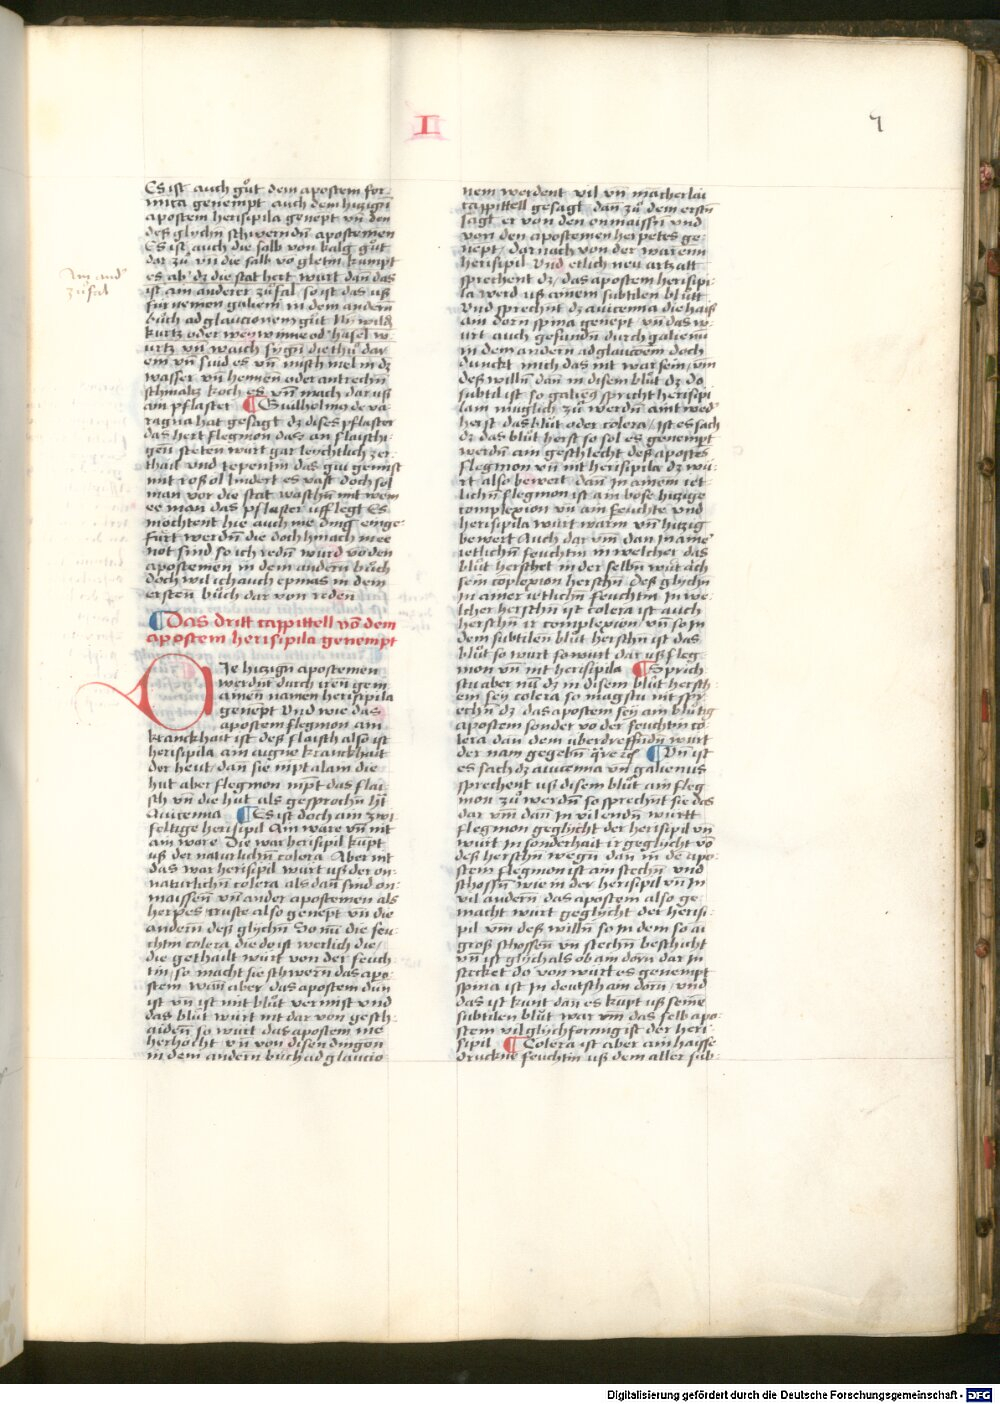 I
7
Es ist auch gůt dem apostem for-
mica genempt auch dem hitzigñ
apostem herisipila genēpt vñ den
deß glychñ schwerndñ apostemen
Es ist auch die salb von kalg gůt
dar zů vñ die salb vō gletin kumpt
es ab dz die stat hert wurt dañ das
ist ain anderer zůfal so ist das uß
fur nemen galieni in dem andern
bůch ad glauconem gůt Nī wild
kurtz oder weywinne od hasel w-
urtz vñ waich sygñ die thů dar
ein vñ sud es vñ misch mel in dz
wasser vñ hennen oder antrechñ
schmaltz koch es vñ mach dar uß
ain pflaster Guilhelmꝰ de va-
ragna hat gesagt dz dises pflaster
das hert flegmon das an flaischi-
gen stetten wurt gar leychtlich zer-
thail vnd tepentin das gůt gemist
mit roß öl lindert es vast doch sol
man vor die stat waschñ mit wein
ee man das pflaster uff legt Es
möchtent hie auch me ding einge-
fürt werdñ die doch hinach mee
not sind so ich redñ wurd vō den
apostemen in dem andern bůch
doch wil ich auch etwas in dem
ersten bůch dar von reden
Das dritt cappittell vō dem
apostem herisipila genempt
DJe hitzigñ apostemen
werdñt durch irēn gem
ainen namen herisipila
genēpt Vnd wie das
apostem flegmon ain
kranckhait ist deß flaisch also ist
herisipila ain aigne kranckhait
der heut dan sie nīpt alain die
hut aber flegmon nīpt das flai-
sch vñ die hut als gesprochñ hat
Auicenna Es ist doch ain zwi
feltige herisipil Ain ware vñ nit
ain wore Die war herisipil kūpt
uß der naturlichñ colera Aber nit
das war herisipil wurt uß der on-
naturlichñ colera als dañ sind on-
maissen vñ ander apostemen als
herpes truste also genēpt vñ die
andern deß glychñ So nū die feu-
chtin colera die do ist werlich die
die gethailt wurt von der feuch
tin so macht sie schwern das apo-
stem wañ aber das apostem dūn
ist vñ ist mit blůt vermist vnd
das blůt wurt nit dar von gesch-
aiden so wurt das apostem me
herhöcht vñ von disen dingen
in dem andern bůch ad glauco
nem werdent vil vñ macherlai
cappittell gesagt dañ zů dem erstñ
sagt er von den onmaissñ vnd
von den apostemen herpetes ge-
nēpt darnach von der waren
herisipil Vnd etlich neu artzatt
sprechent dz das apostem herisipi-
la werd uß ainem subtilen blůtt
Vnd spricht dz auicenna die haiß
ain dorn spina genēpt vñ das w-
urt auch gefundñ durch galienū
in dem andern ad glaucoēm doch
dunckt mich das nit war sein vm
deß willñ dañ in disem blůt dz do
subtil ist so galienꝰ spricht herisipi
lam muglich zů werdñ aintwed
herst das blůt oder colera ist es sach
dz das blůt herst so sol es genempt
werdñ ain geschlecht deß apostēs
flegmon vñ nit herisipila dz wü-
rt also bewert dañ in ainem iet-
lichñ flegmon ist ain böse hitzige
complexion vñ ain feuchte vnd
herisipila wurt warm vñ hitzig
bewert Auch dar vm dan in aine
ietlichñ feuchtin in welcher das
blůt herschet in der selbñ wurt ach
sein cōplexion herschñ Deß glychñ
in ainer ietlichñ feuchtin in we-
lcher herschñ ist colera ist auch
herschñ ir complexion vñ so in
dem subtilen blůt herschñ ist das
blůt so wurt so wurt dar uß fleg
mon vñ nit herisipila Sprich
stu aber nū dz in disem blůt hersch-
en sey colera so magstu nit spr-
echñ dz das apostem sey ain blůtig
apostem sonder vō der feuchtin co
lera dan dem überdreffendñ wurt
der nam gegebñ Vñ ist
es sach dz auicenna vñ galienus
sprechent uß disem blůt ain fleg
mon zů werdñ so sprechñt sie das
dar vm dañ in vil endñ wurtt
flegmon geglycht der herisipil vñ
wurt in sonderhait ir geglycht vō
deß herschñ wegñ dan in dē apo-
stem flegmon ist ain stechñ vnd
schossñ wie in der herisipil vñ in
vil andern das apostem also ge-
macht wurt geglycht der herisi-
pil vm deß willñ so in dem so ai
groß schossen vñ stechñ beschicht
vñ ist glych als ob ain dorn dar in
stecket do von wurt es genempt
spina ist in deutsch ain dorn vnd
das ist kunt dan es kūpt uß seinē
subtilen blůt war vm das selb apo-
stem vil glychformig ist der heri-
sipil Colera ist aber ain haisse
druckne feuchtin uß dem aller sub-
Digitalisierung gefördert durch die Deutsche Forschungsgemeinschaft - DFG